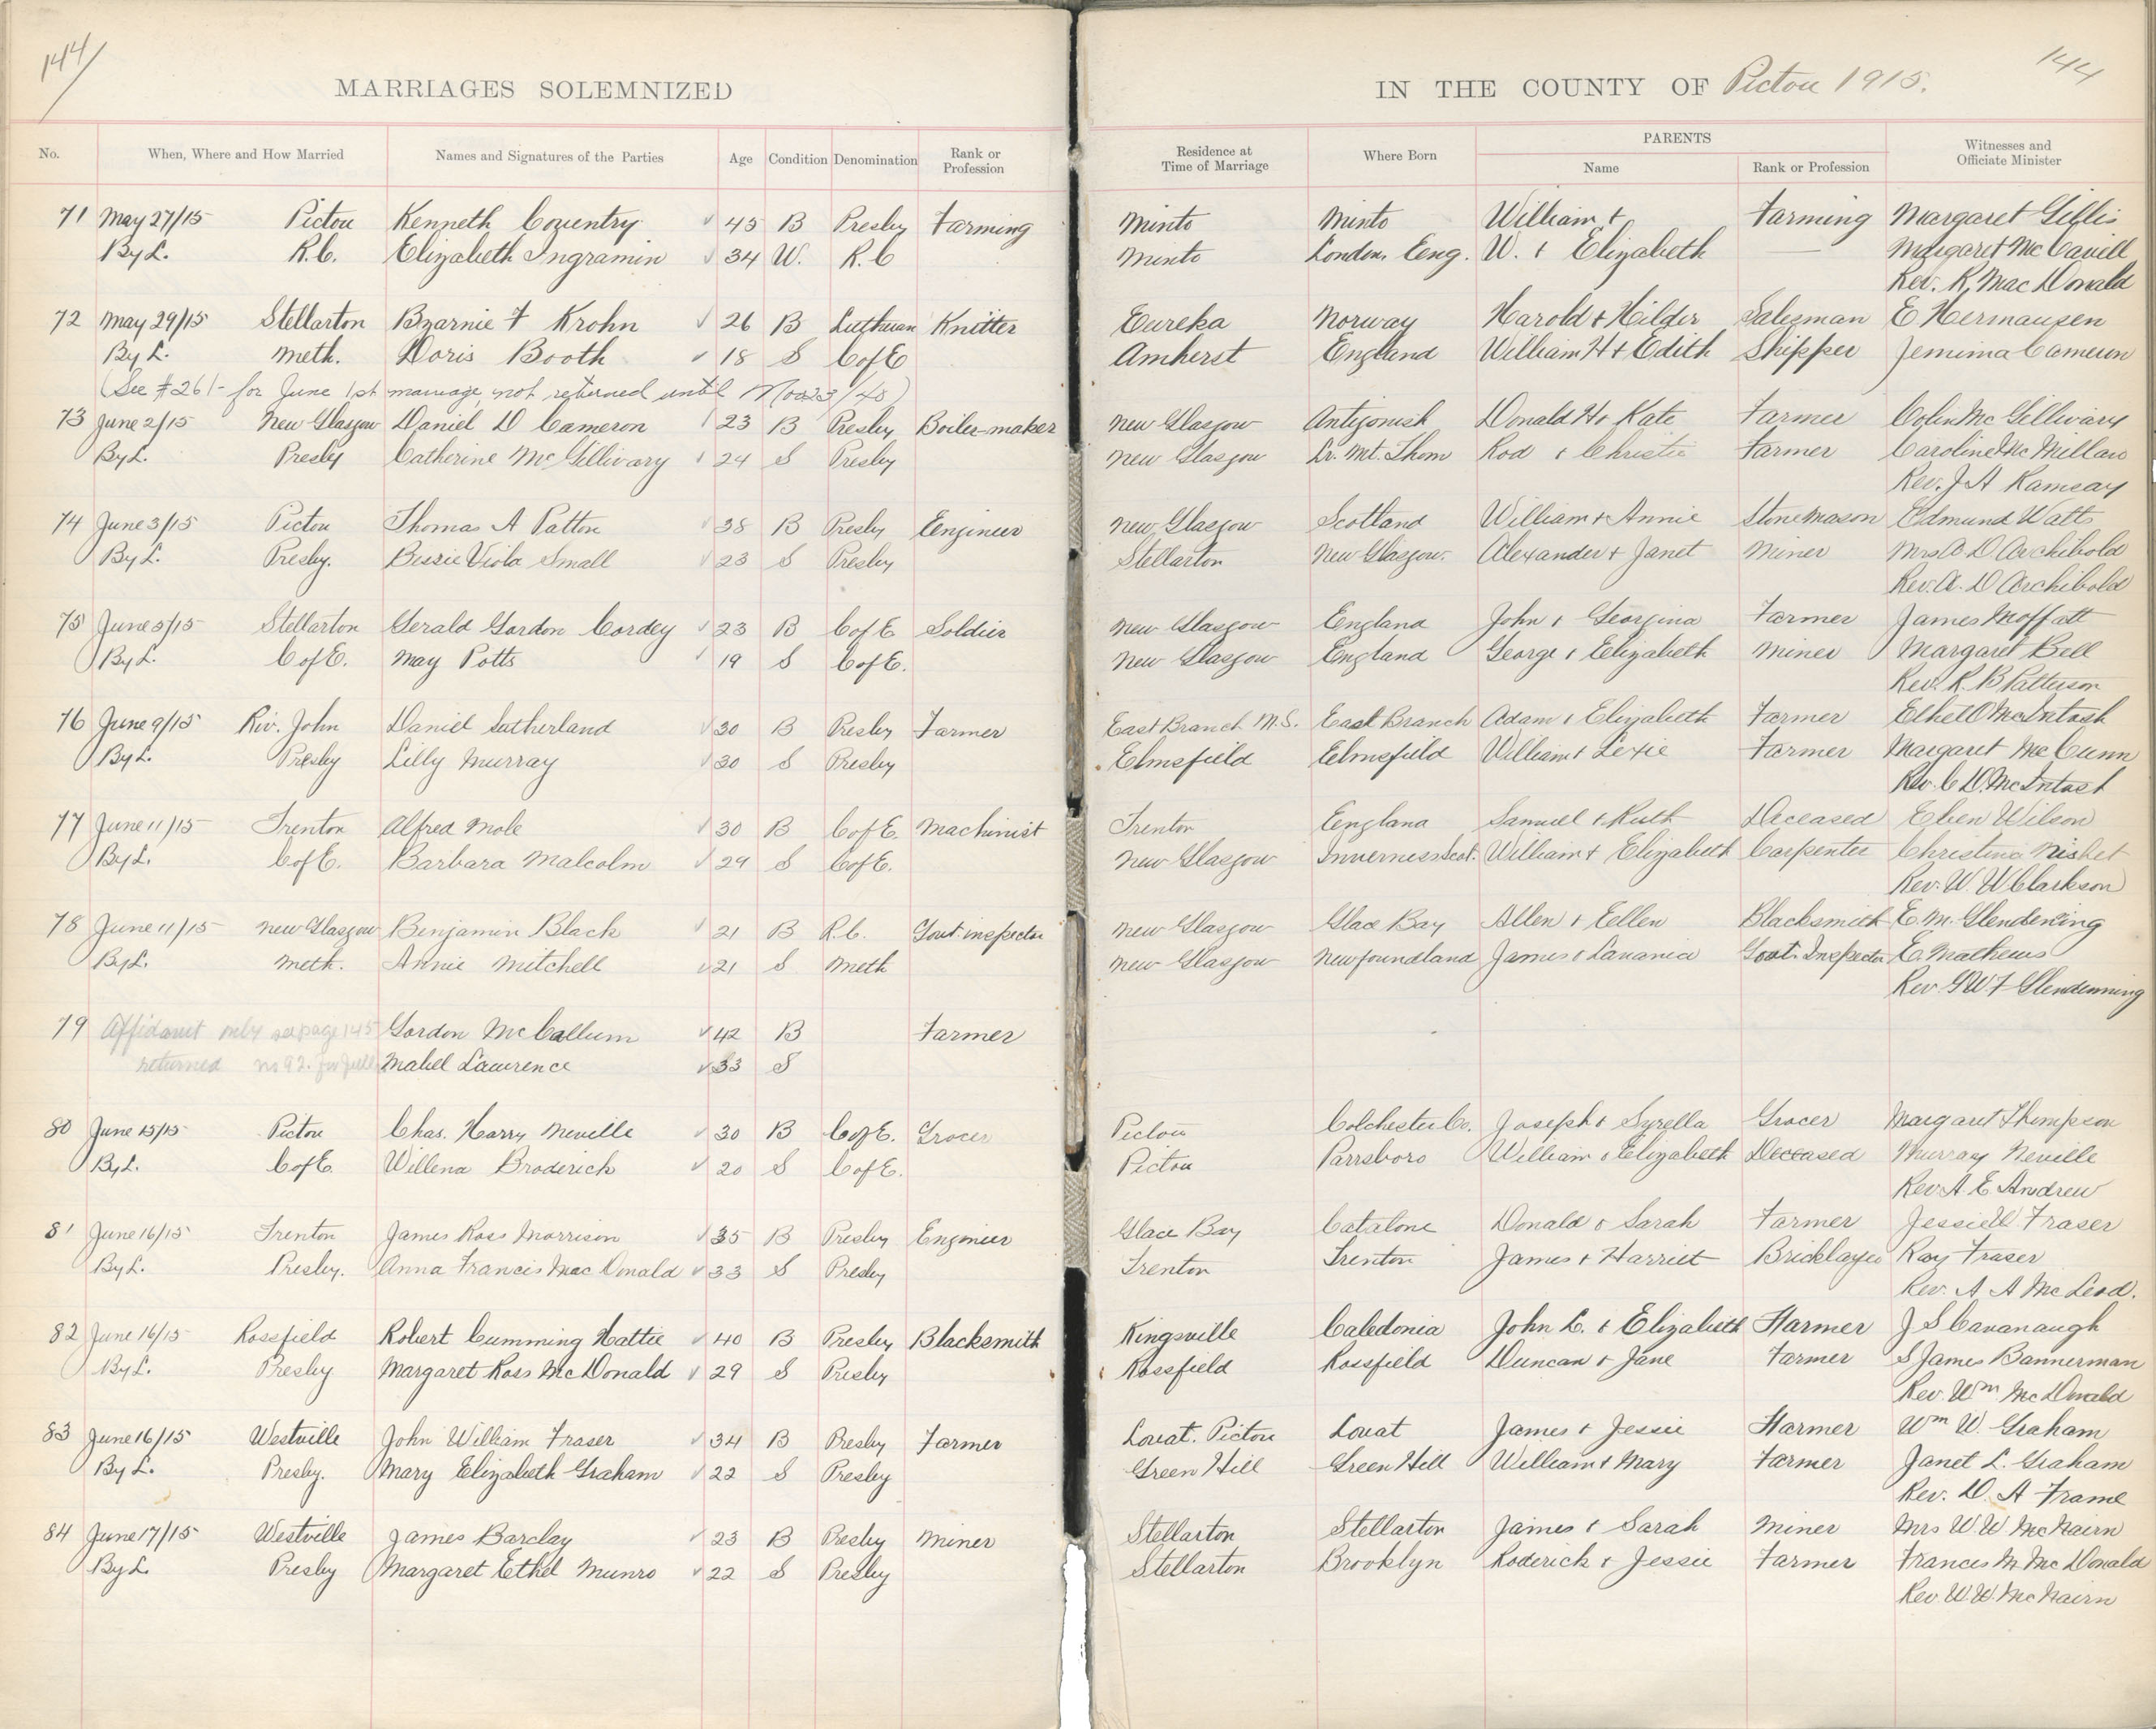 144
144
MARRIAGES SOLEMNIZED IN THE COUNTY OF Pictou 1915.
No. When, Where and How Married Names and Signatures of the Parties Age Condition Denomination Rank or Profession Residence at Time of Marriage Where Born PARENTS Name Rank or Profession Witnesses and Officiate Minister
71 May 27/15 Pictou Kenneth Coventry 45 B Presby Farming Minto Minto William + Farming Margaret Gillis
By L. R.C. Elizabeth Ingramin 34 W. R.C Minto London, Eng. W. + Elizabeth — Margaret McCavill
Rev. R. MacDonald
72 May 29/15 Stellarton Bzarnie F Krohn 26 B Lutheran Knitter Eureka Norway Harold + Hilder Salesman E Hermausen
By L. Meth. Doris Booth 18 S C of E Amherst England William H + Edith Shipper Jemima Cameron
(See #261- for June 1st marriage, not returned until
73 June 2/15 New Glasgow Daniel D Cameron 23 B Presby Boiler-maker New Glasgow Antigonish Donald H + Kate Farmer Colin McGillivary
By L. Presby Catherine McGillivary 24 S Presby New Glasgow Lr. Mt. Thom Rod + Christie Farmer Caroline McMillan
Rev. J A Ramsay
74 June 3/15 Pictou Thomas A Patton 38 B Presby Engineer New Glasgow Scotland William + Annie Stone Mason Edmund Watts
By L. Presby. Bessie Viola Small 23 S Presby Stellarton New Glasgow. Alexander + Janet Miner Mrs A D Archibold
Rev. A. D Archibold
75 June 5/15 Stellarton Gerald Gordon Cordey 23 B C of E Soldier New Glasgow England John + Georgina Farmer James Moffatt
By L. C of E. May Potts 19 S C of E. New Glasgow England George + Elizabeth Miner Margaret Bell
Rev. R. B Patterson
76 June 9/15 Riv. John Daniel Sutherland 30 B Presby Farmer East Branch M.S. East Branch Adam + Elizabeth Farmer Ethel D McIntosh
By L. Presby Lilly Murray 30 S Presby Elmsfield Elmsfield William + Lexie Farmer Margaret McCunn
Rev. C D. McIntosh
77 June 11/15 Trenton Alfred Mole 30 B C of E. Machinist Trenton England Samuel + Ruth Deceased Eben Wilson
By L. C of E. Barbara Malcolm 29 S C of E. New Glasgow Inverness Scot. William + Elizabeth Carpenter Christina Nisbet
Rev. W. W Clarkson
78 June 11/15 New Glasgow Benjamin Black 21 B R.C. Govt. inspector New Glasgow Glace Bay Allen + Ellen Blacksmith E. M. Glendening
By L. Meth. Annie Mitchell 21 S Meth New Glasgow Newfoundland James + Lavania Govt. Inspector E. Mathews
Rev G W F Glendenning
79 Affidavit only see page 145 Gordon McCallum 42 B Farmer
returned no 92. for full Mabel Lawrence 33 S
80 June 15/15 Pictou Chas. Harry Neville 30 B C of E. Grocer Pictou Colchester Co. Joseph + Syrella Grocer Margaret Thompson
By L. C of E. Willena Broderick 20 S C of E. Pictou Parrsboro William + Elizabeth Deceased Murray Neville
Rev. A. E. Andrew
81 June 16/15 Trenton James Ross Morrison 35 B Presby Engineer Glace Bay Catalone Donald + Sarah Farmer Jessie W Fraser
By L. Presby. Anna Francis MacDonald 33 S Presby Trenton Trenton James + Harriet Bricklayer Roy Fraser
Rev. A A McLeod.
82 June 16/15 Rossfield Robert Cumming Hattie 40 B Presby Blacksmith Kingsville Caledonia John L. + Elizabeth Farmer J S Cavanaugh
By L. Presby Margaret Ross McDonald 29 S Presby Rossfield Rossfield Duncan + Jane Farmer S James Bannerman
Rev. Wm McDonald
83 June 16/15 Westville John William Fraser 34 B Presby Farmer Lovat. Pictou Lovat James + Jessie Farmer Wm W. Graham
By L. Presby. Mary Elizabeth Graham 22 S Presby Green Hill Green Hill William + Mary Farmer Janet L. Graham
Rev. D. A Frame
84 June 17/15 Westville James Barclay 23 B Presby Miner Stellarton Stellarton James + Sarah Miner Mrs W. W McNairn
By L. Presby Margaret Ethel Munro 22 S Presby Stellarton Brooklyn Roderick + Jessie Farmer Frances M McDonald
Rev. W. W. McNairn